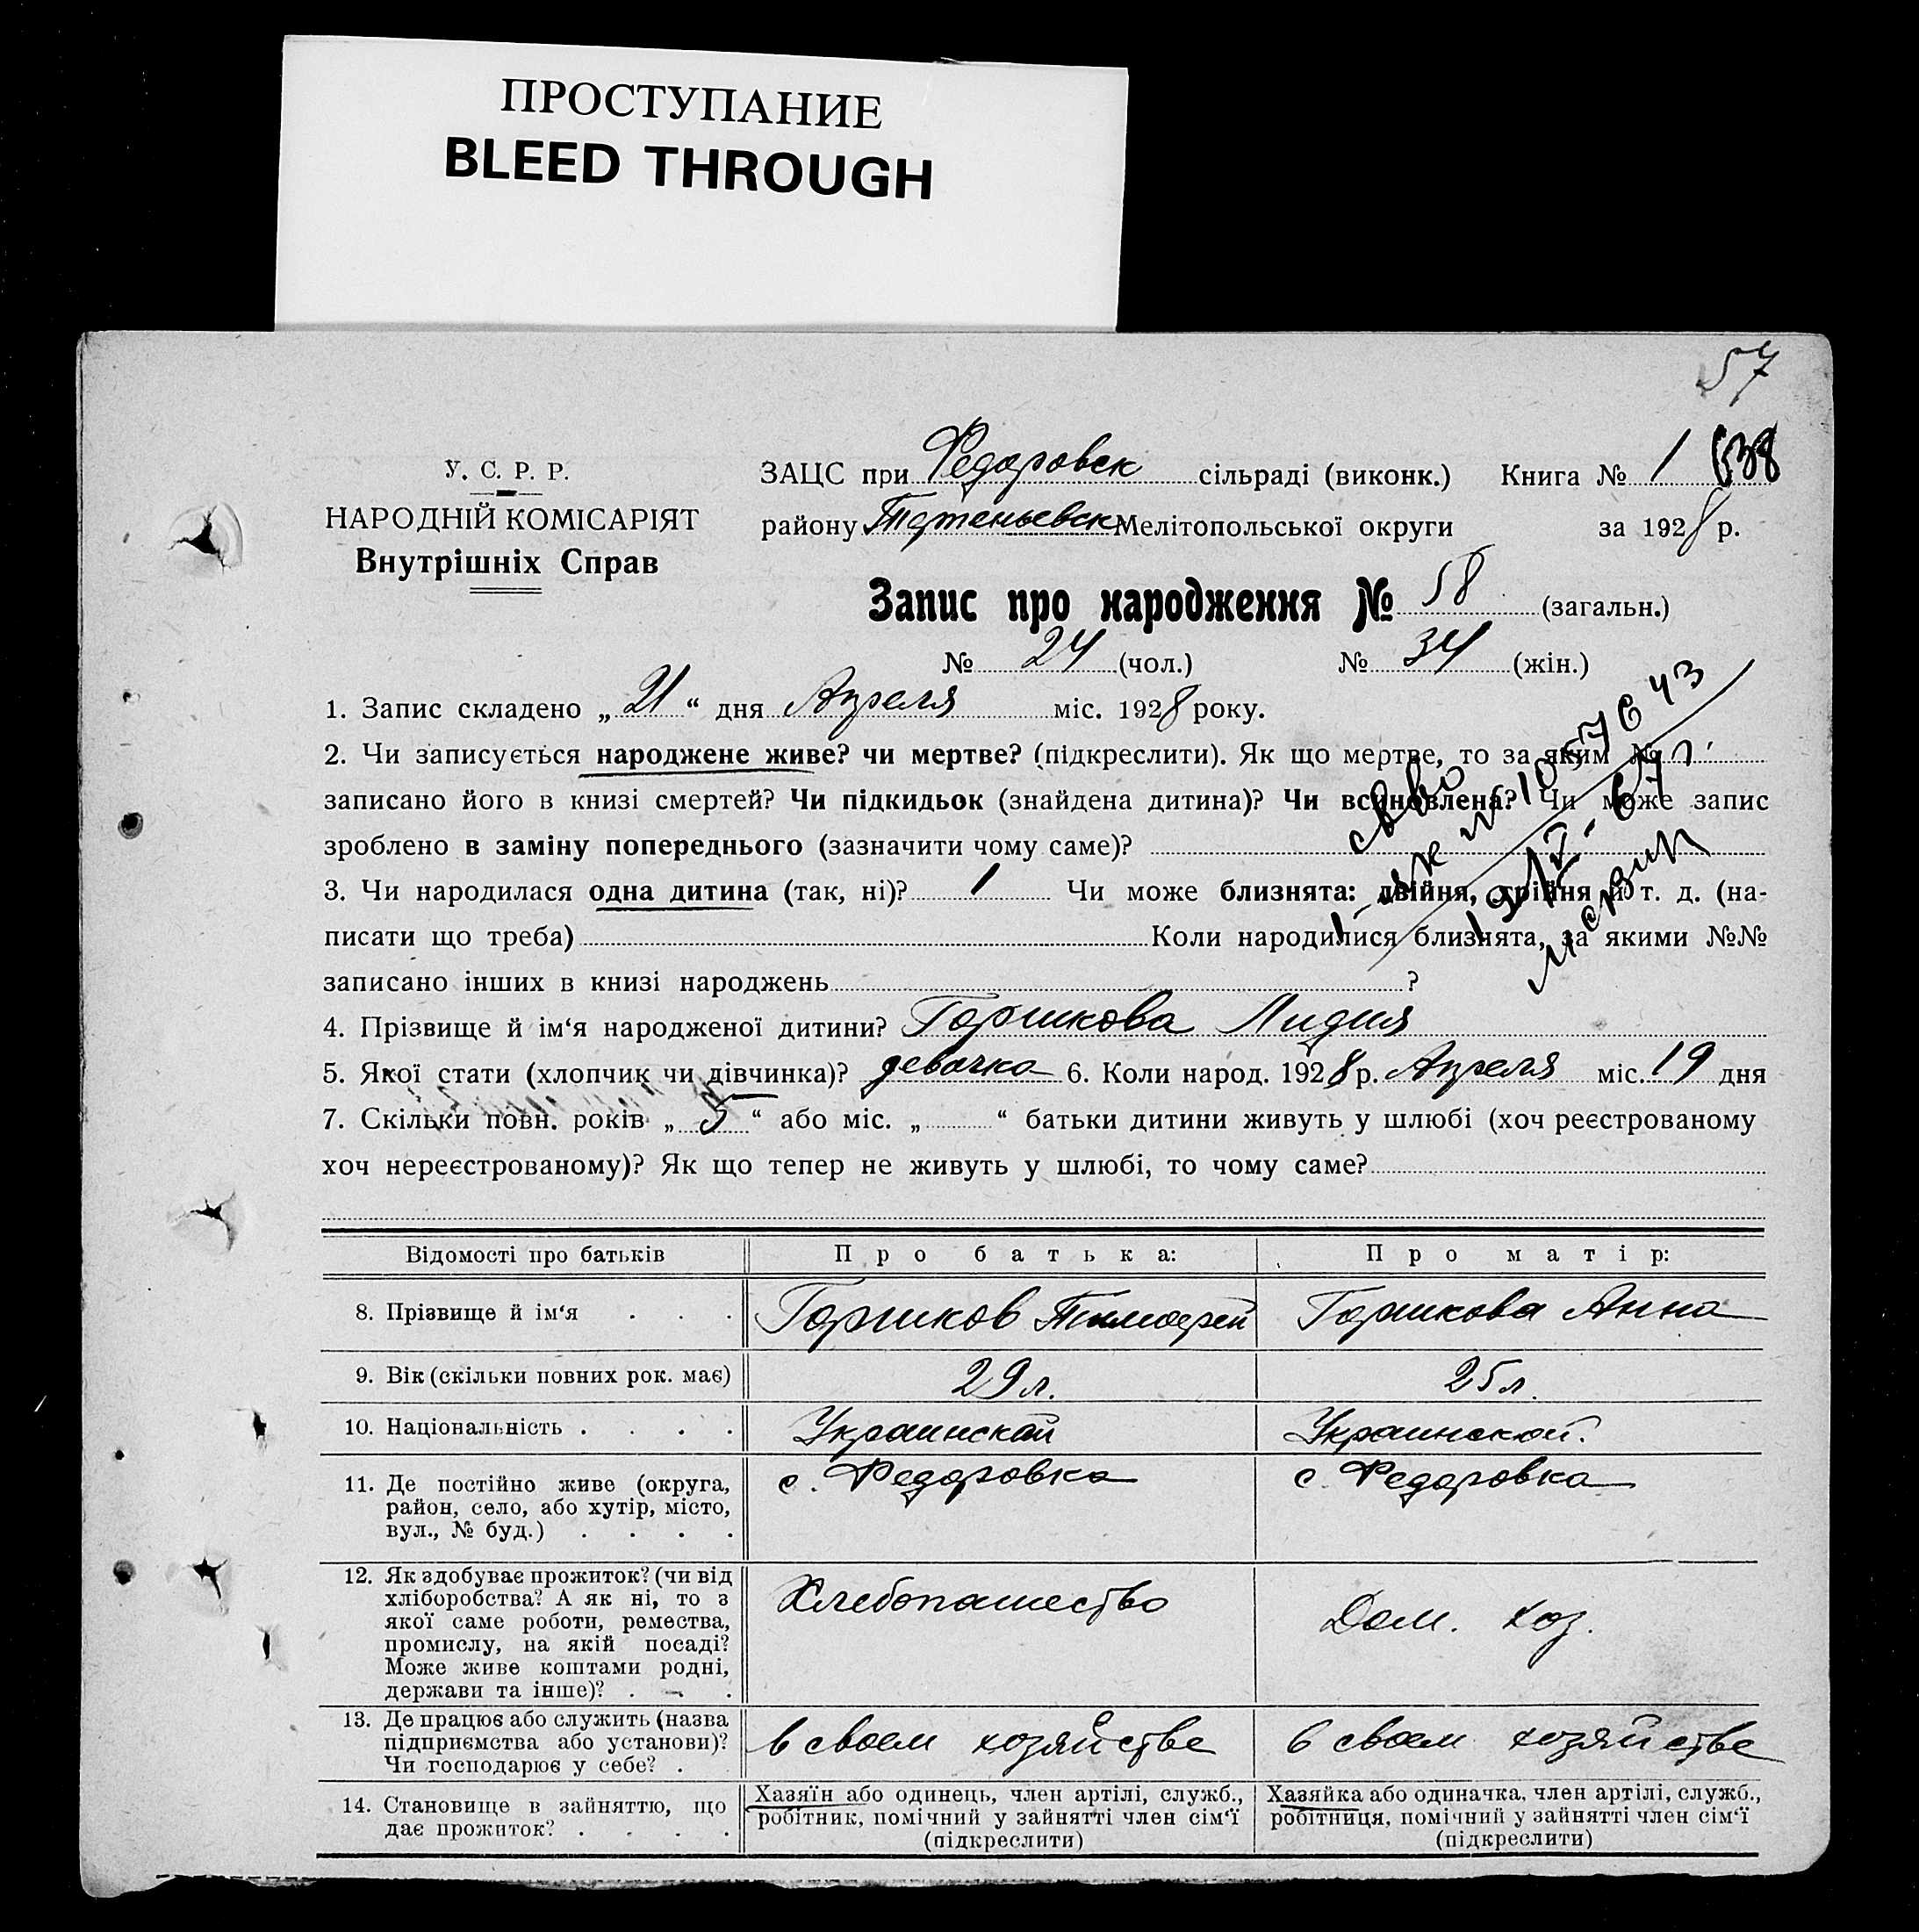 ПРОСТУПАНИЕ
BLEED THROUGH
57
У. С. Р. Р.
НАРОДНІЙ КОМІСАРІЯТ
Внутрішніх Справ
ЗАЦС при Федоровск сільраді (виконк.) Книга № 1
району Мелітопольської округи за 1928 р.
Запис про народження № 58 (загальн.)
№ 24 (чол.) № 34 (жін.)
1. Запис складено „ 21 “ дня Апреля міс. 1928 року.
2. Чи записується народжене живе? чи мертве? (підкреслити). Як що мертве, то за яким №
записано його в книзі смертей? Чи підкидьок (знайдена дитина)? Чи всиновлена? Чи може запис
зроблено в заміну попереднього (зазначити чому саме)?
3. Чи народилася одна дитина (так, ні)? 1 Чи може близнята: двійня, трійня й т. д. (на-
писати що треба) Коли народилися близнята, за якими №№
записано інших в книзі народжень ?
4. Прізвище й ім‘я народженої дитини? Горшкова Лидия
5. Якої стати (хлопчик чи дівчинка)? девочка 6. Коли народ. 1928 р. Апреля міс. 19 дня
7. Скільки повн. років „ 5 “ або міс. „ “ батьки дитини живуть у шлюбі (хоч реєстрованому
хоч нереєстрованому)? Як що тепер не живуть у шлюбі, то чому саме?
Відомості про батьків Про батька: Про матір:
8. Прізвище й ім‘я . . . Горшков Тимофей Горшкова Анна
9. Вік (скільки повних рок. має) 29 л. 25 л.
10. Національність . . . . Украинской Украинской.
11. Де постійно живе (округа, с. Федоровка с. Федоровка
район, село, або хутір, місто,
вул., № буд.) . . . .
12. Як здобуває прожиток? (чи від
хліборобства? А як ні, то з
якої саме роботи, ремества,
промислу, на якій посаді?
Може живе коштами родні,
держави та інше)? . . .
Хлебопашество Дом. хоз.
13. Де працює або служить (назва
підприємства або установи)?
Чи господарює у себе? .
в своем хозяйстве в своем хозяйстве
14. Становище в зайняттю, що
дає прожиток? . . . .
Хазяїн або одинець, член артілі, служб.,
робітник, помічний у зайнятті член сім‘ї
(підкреслити)
Хазяйка або одиначка, член артілі, служб.,
робітниця, помічний у зайнятті член сім‘ї
(підкреслити)